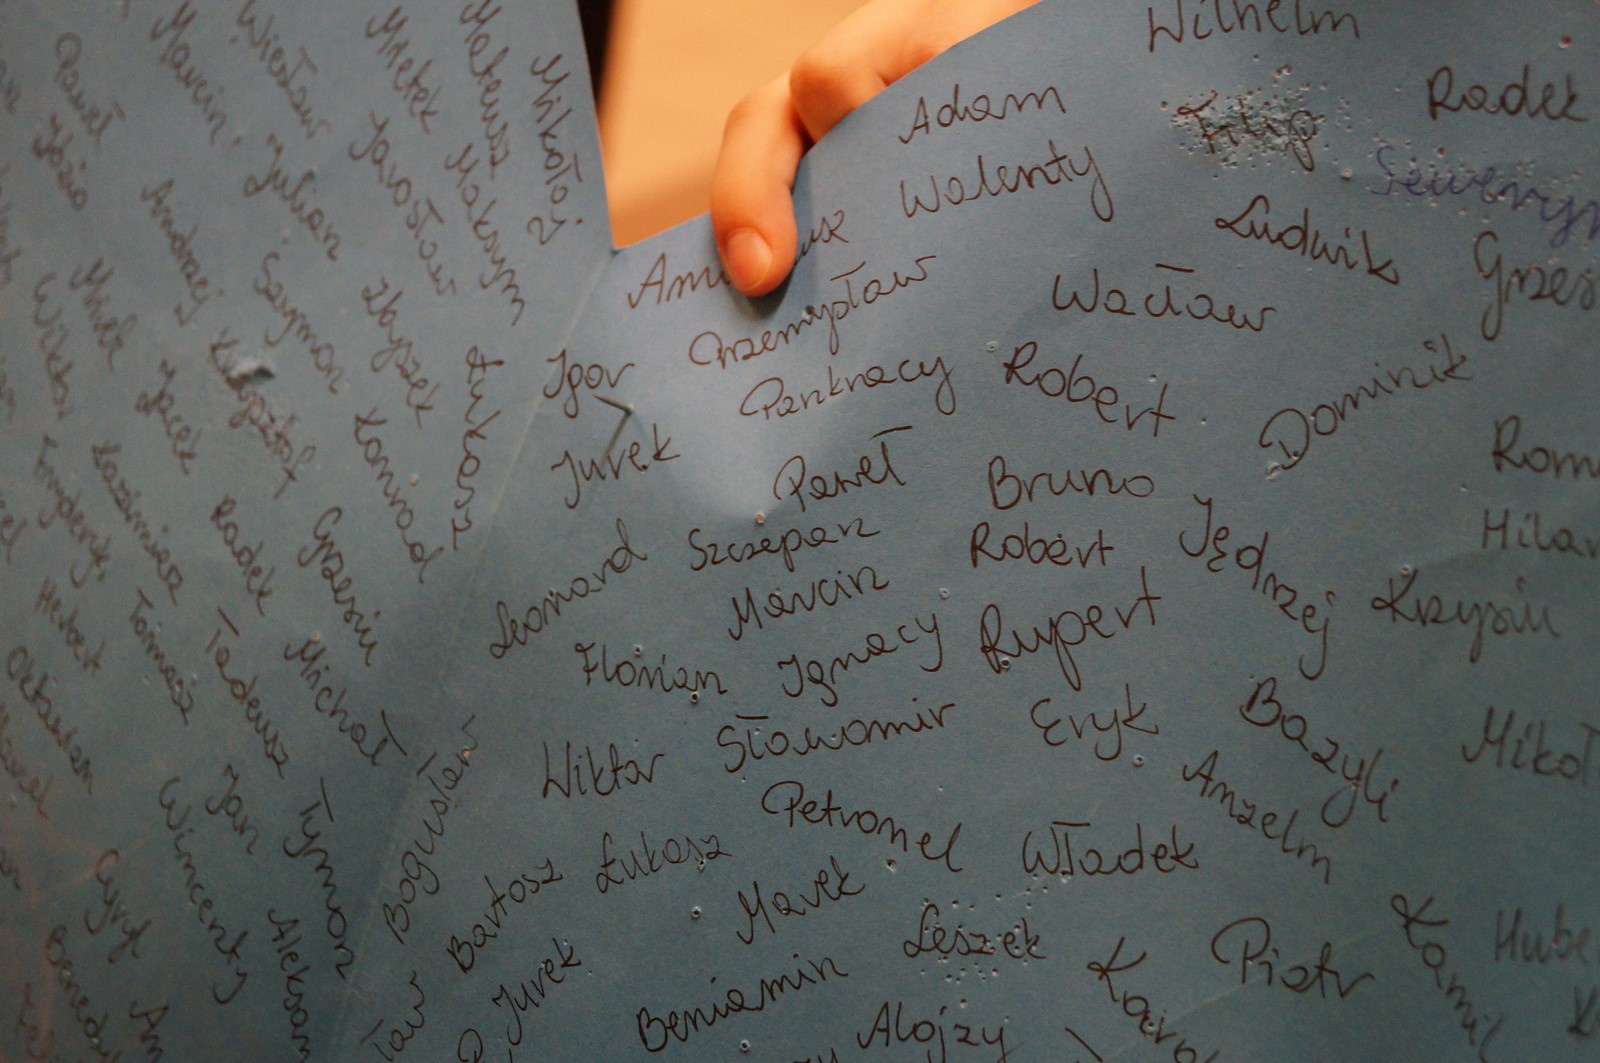 Mikołaj
Mateusz
Maksym
Mietek
Jarosław
Wiesław
Julian
Zbyszek
Łukasz
Marcin
Szymon
Konrad
Paweł
Józio
Andrzej
Krzysztof
Grzesiu
Jacek
Radek
Michał
Wiktor
Kazimierz
Tadeusz
Tymon
Fryderyk
Tomasz
Jan
Oktawian
Wincenty
Cyryl
Wilhelm
Adam
Filip
Radek
Walenty
Seweryn
Ludwik
Przemysław
Wacław
Igor
Pankracy
Robert
Dominik
Jurek
Paweł
Bruno
Leonard
Szczepan
Robert
Jędrzej
Marcin
Krzysiu
Florian
Ignacy
Rupert
Wiktor
Sławomir
Eryk
Bazyli
Bogusław
Petronel
Anzelm
Bartosz
Łukasz
Marek
Władek
Jurek
Beniamin
Leszek
Piotr
Kamil
Alojzy